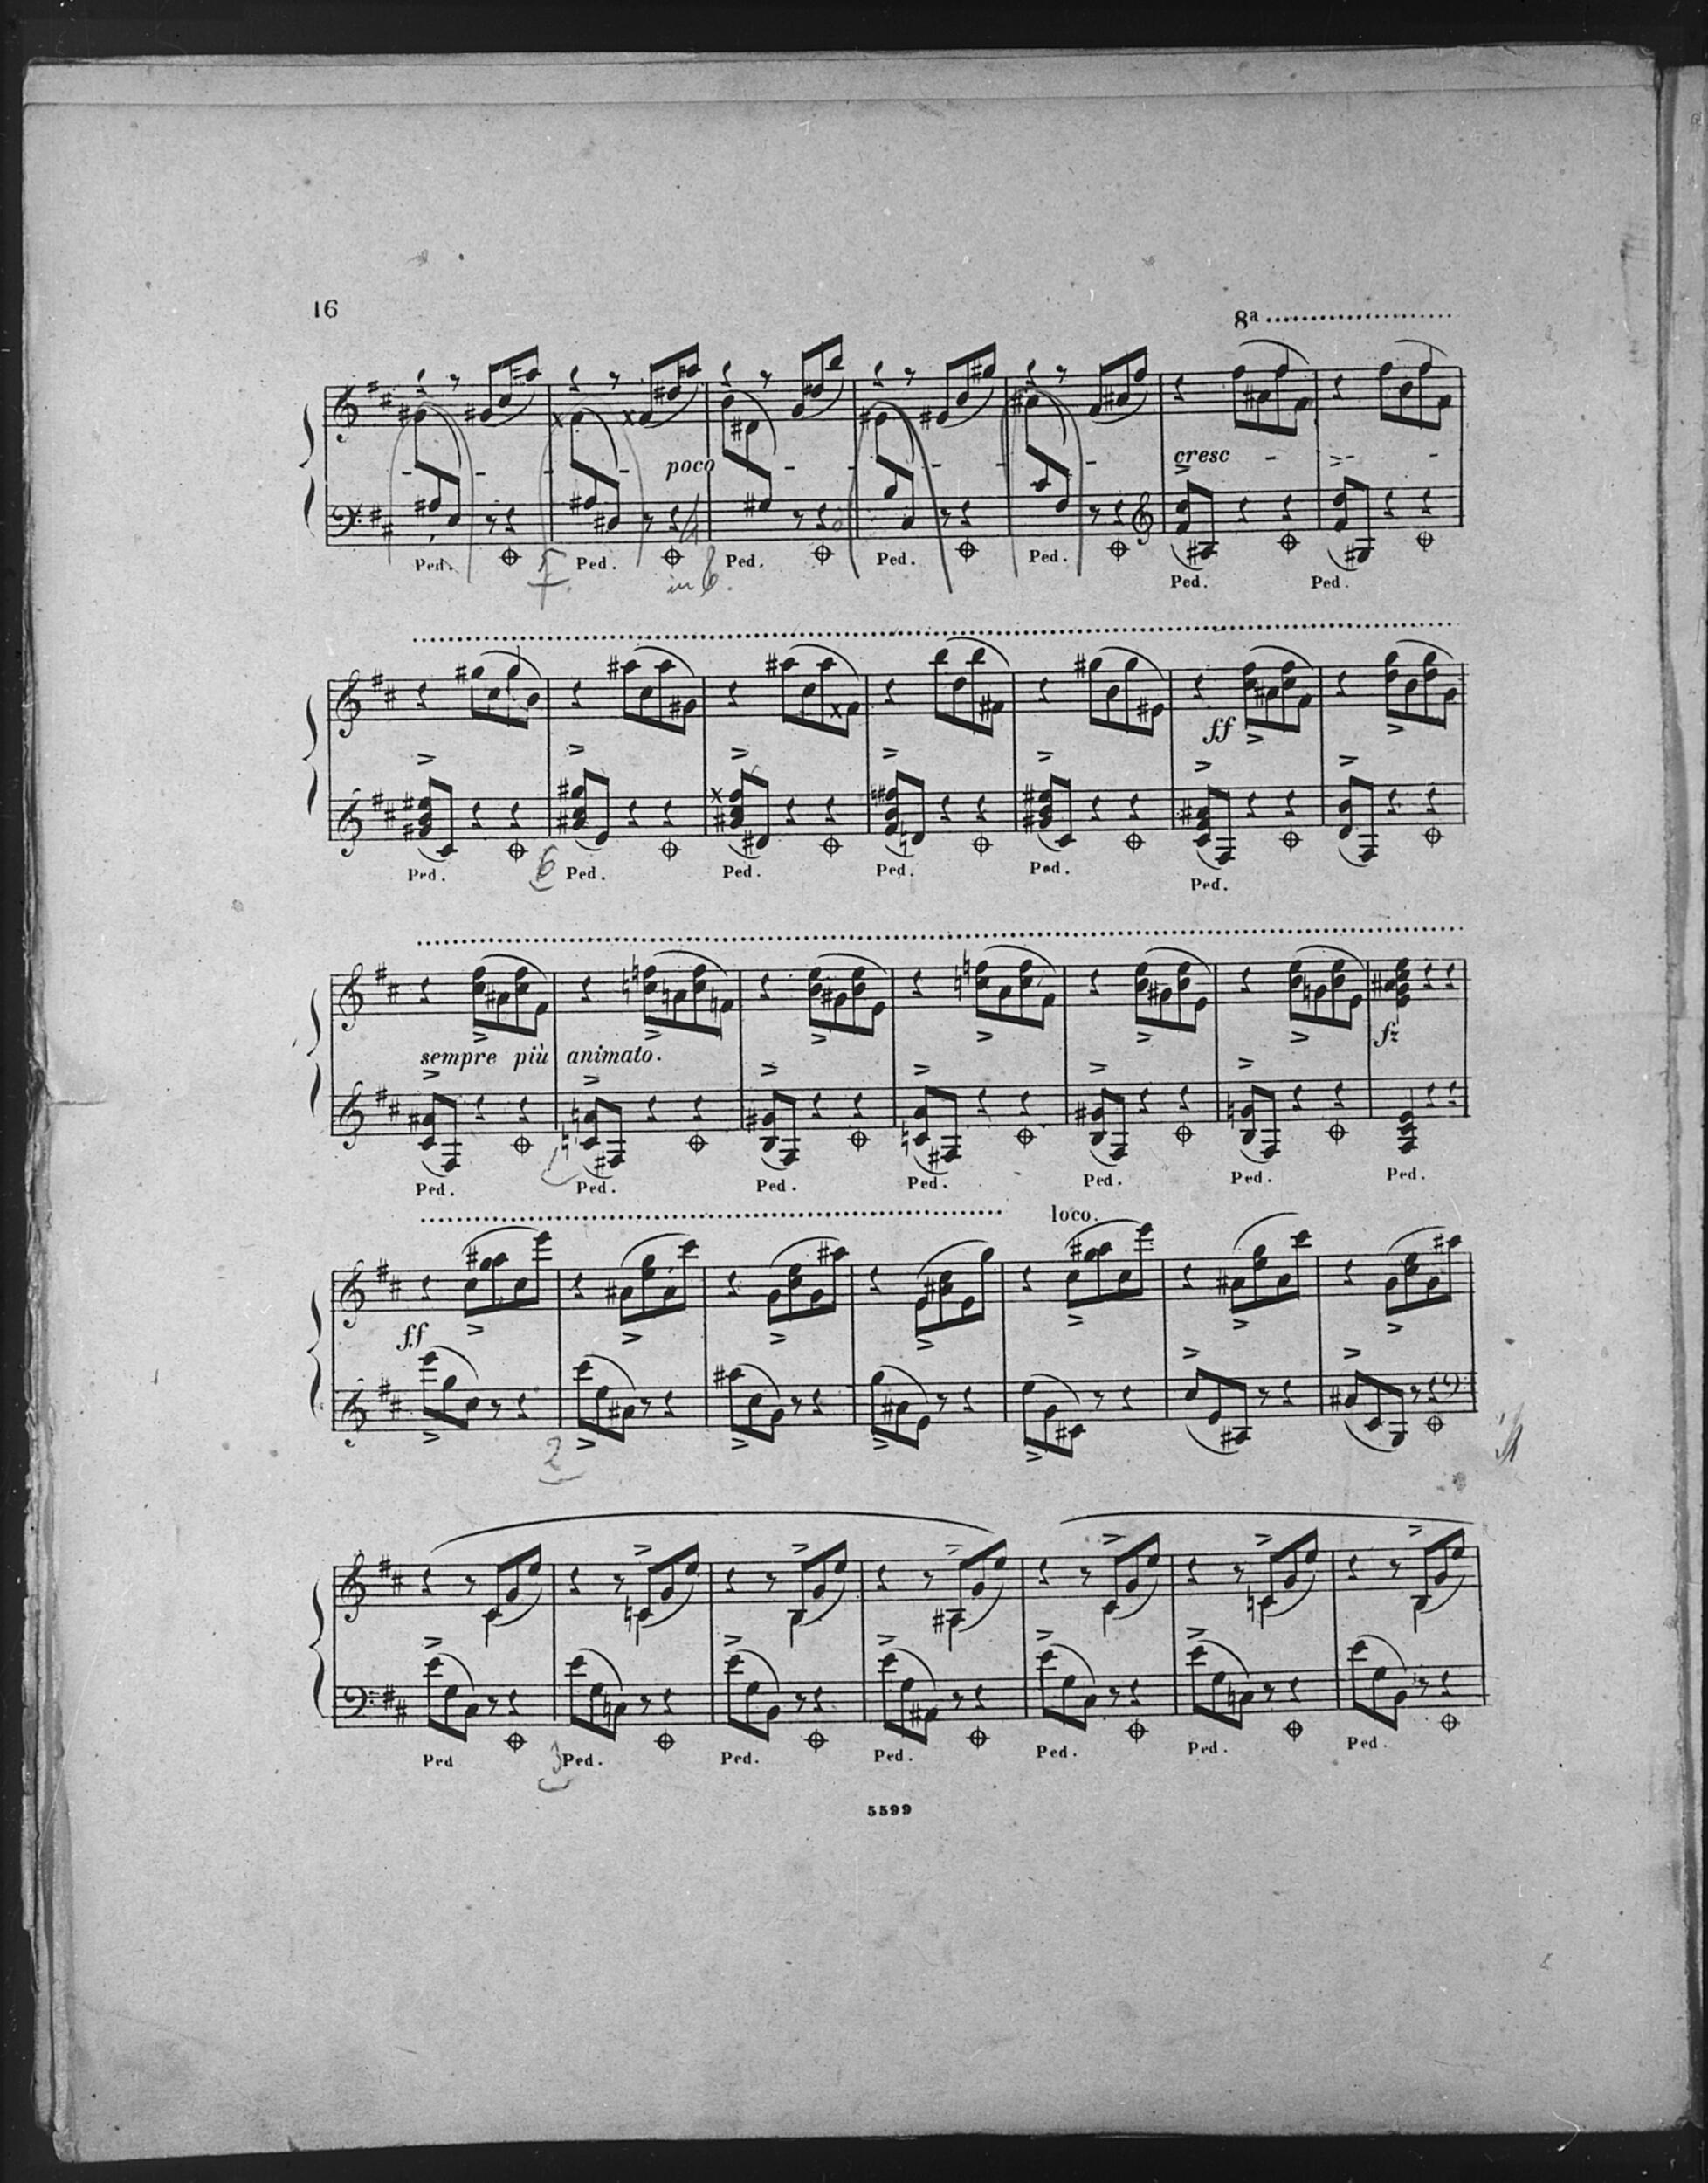 16
8ª
poco
cresc
Ped. Ped. Ped. Ped. Ped. Ped. Ped.
7. in 6.
ff
6
Ped. Ped. Ped. Ped. Ped. Ped.
sempre più animato.
fz
Ped. Ped. Ped. Ped. Ped. Ped. Ped.
loco.
ff
2
3
Ped Ped. Ped. Ped. Ped. Ped. Ped.
5599